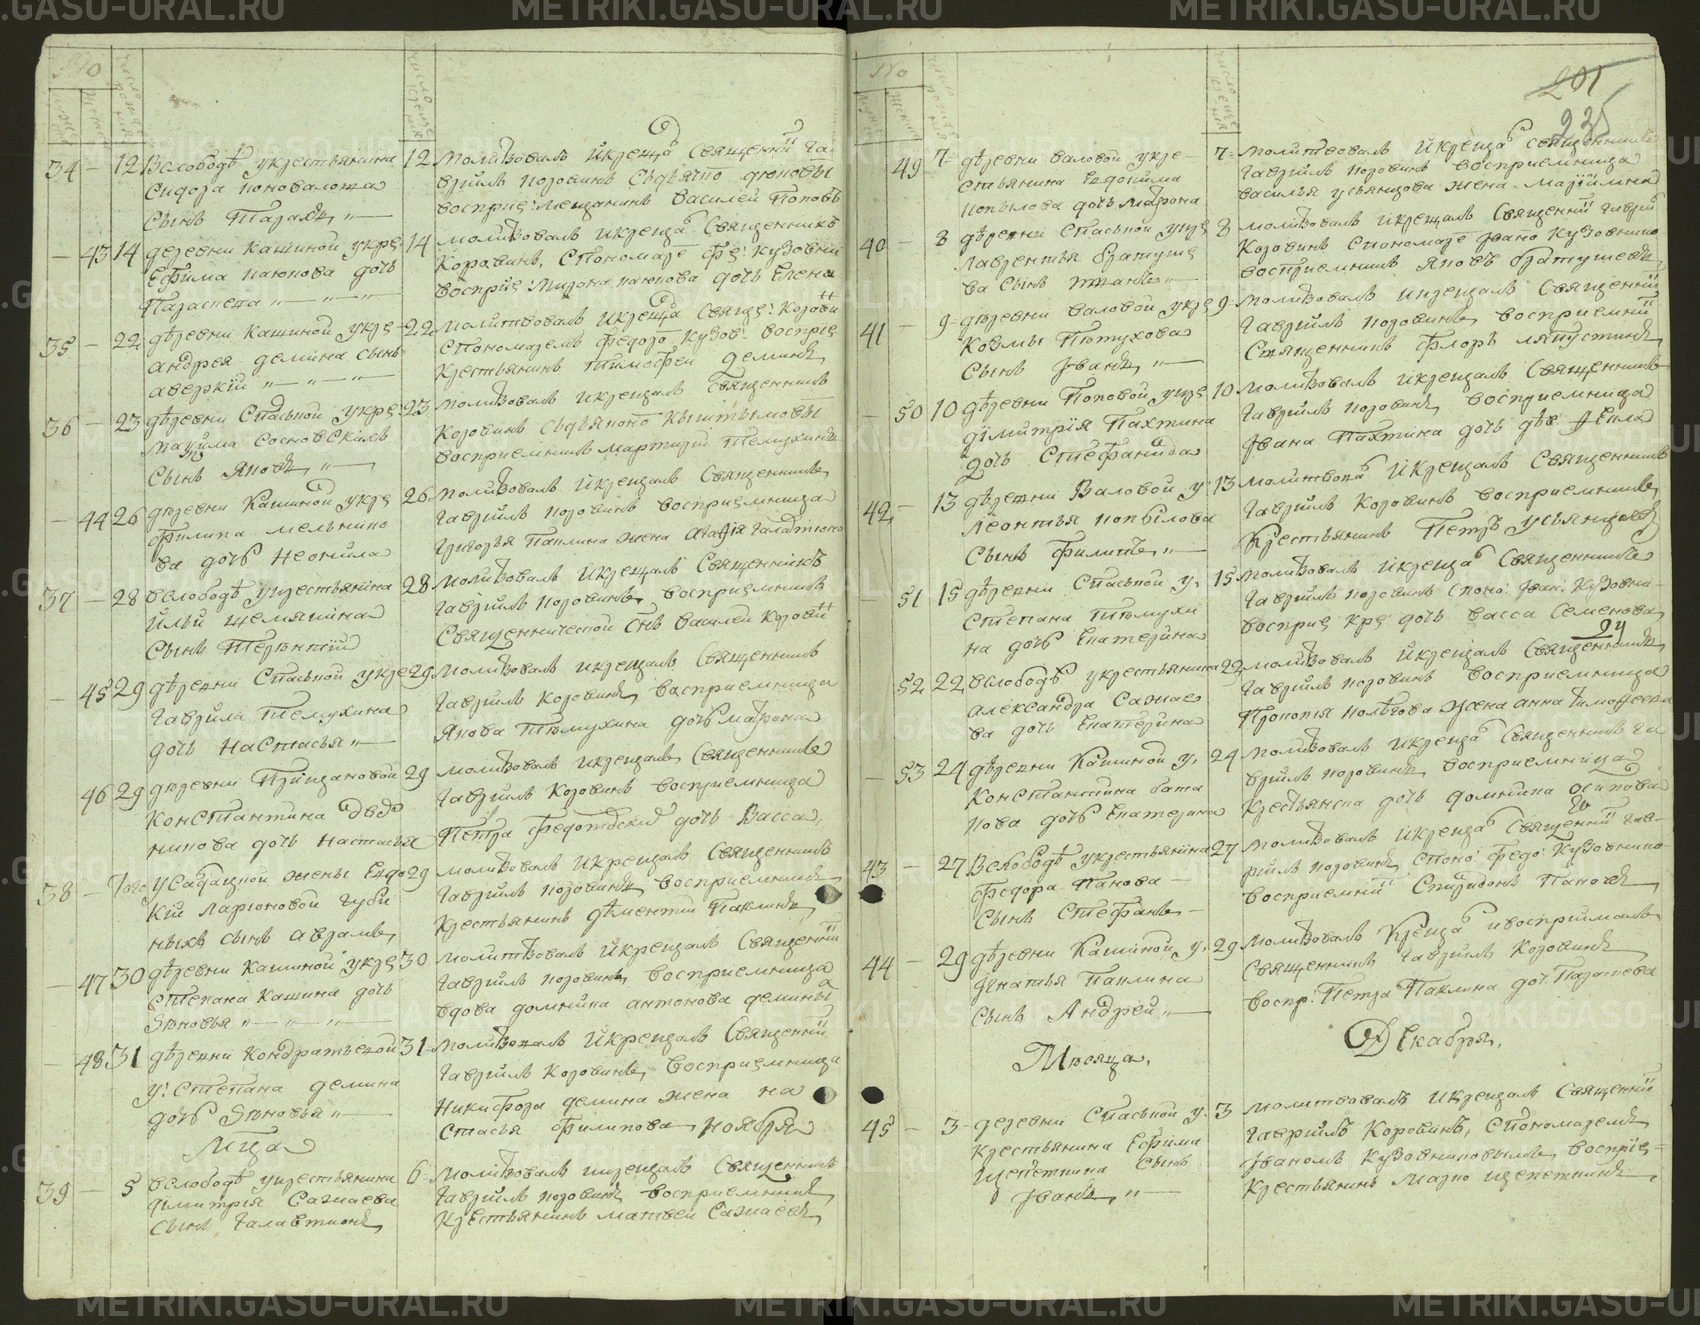 METRIKI.GASU-URAL.RU
№
34 — 12 Вслободѣ укрестьянина
Сидора
сынъ Тарахъ
12 молитвовалъ и крещалъ священникъ Га-
врїилъ Коровинъ
воспрiе: мещанинъ Василей Поповъ
— 43 14 деревни Кашиной укре
Ефима дочь
Параскева
14 молитвовалъ и креща священникъ
Коровинъ, Спономаре Фе: Кузовни
воспрiе: Мирона дочь Елена
35 — 22 дѣревни Кашиной укре
андрея демина сынъ
аверкiй
22 молитвовалъ и креща свяще: Корови
Спономаремъ Федоро Кузов: воспрiе
крестьянинъ Тимофей деминъ
36 — 23 дѣревни Спаской укре
Сосновскихъ
Сынъ Яковъ
23 молитвовалъ и крещалъ Священникъ
Коровинъ
восприемникъ
— 44 26 дѣревни Кашиной укре
Филипа мельнико
ва дочь Неонила
26 молитвовалъ и крещалъ Священникъ
Гаврiилъ Коровинъ восприемница
Григорья Паклина жена
37 — 28 вслободѣ укрестьянина
Ильи
Сынъ Терентiй
28 молитвовалъ и крещалъ Священникъ
Гаврiилъ Коровинъ, восприемникъ
Священнической Снъ Василей Корови
— 45 29 дѣревни Спаской укре
Гаврила Телухина
дочь Настасья
29 молитвовалъ и крещалъ Священникъ
Гаврiилъ Коровинъ, восприемница
Якова дочь матрона
46 29 деревни
Константина
нинова дочь настасья
29 молитвовалъ и крещалъ Священникъ
Гаврiилъ Коровинъ восприемница
Петра дочь Васса
38 — жены Евдо
кiи Ларионовой
сынъ аврамъ
29 молитвовалъ и крещалъ Священникъ
Гаврiилъ Коровинъ восприемникъ
Крестьянинъ дѣментiй Паклинъ
— 47 30 дѣревни Кашиной укре
Степана Кашина дочь
Зѣновья
30 молитвовалъ и крещалъ Священни
Гаврiилъ Коровинъ, восприемница
вдова домнина антонова демины
— 48 31 дѣревни Кондратьевой
у: Степана демина
дочь Зѣновья
31 молитвовалъ и крещалъ Священни
Гаврiилъ Коровинъ, восприемница
Никифора демина жена на
стасья Филипова
Мца
ноября
39 — 5 вслободѣ укрестьянина
дiмитрiя Сажаева
сынъ Галактионъ
6 молитвовалъ и крещалъ Священникъ
Гаврiилъ Коровинъ восприемникъ
Крестьянинъ матвей Сажаевъ
201
235
№
— 49 7 дѣревни валовой укре
стьянина Евдокима
Копылова дочь матрона
7 молитвовалъ и креща священникъ
Гаврiилъ Коровинъ восприемница
василья усьянцова жена
40 — 8 дѣревни Спаской укре
Лаврентья братуше
ва Сынъ
8 молитвовалъ и крещалъ Священни Гаврiи
Коровинъ Спономаре Ивано Кузовнико
восприемникъ Яковъ братушевъ
41 — 9 деревни валовой укре
Козмы Петухова
Сынъ Иванъ
9 молитвовалъ и крещалъ Священни
Гаврiилъ Коровинъ восприемни
Священникъ Флоръ ляпустинъ
— 50 10 дѣревни Поповой укре
димитрiя Пахтина
дочь Стефанида
10 молитвовалъ и крещалъ Священникъ
Гаврiилъ Коровинъ, восприемница
Ивана Пахтина дочь дѣв:
42 — 13 дѣревни Валовой у:
Леонтья Копылова
Сынъ Филипъ
13 молитвова и крещалъ Священникъ
Гаврiилъ Коровинъ восприемникъ
Крестьянинъ Петръ Усьянцовъ
— 51 15 дѣревни Спаской у,
Степана
на дочь Екатерина
15 молитвовалъ и креща Священникъ
Гаврiилъ Коровинъ Споно: Иван: Кузовни-
восприе кре дочь васса Семенова
— 52 22 вслободѣ укрестьянина
александра Сажае
ва дочь Екатерина
24
22 молитвовалъ и крещалъ Священникъ
Гаврiилъ Коровинъ восприемница
Прокопья жена анна Тимофеева
— 53 24 дѣревни Кашиной у,
Константина бата
кова дочь Екатерина
24 молитвовалъ и креща Священникъ Га
врiилъ Коровинъ, восприемница
Крестьянска дочь домнина осипова
43 — 27 Вслободѣ укрестьянина
Федора Панова
Сынъ Стефанъ
27 молитвовалъ и креща Священни Гав-
рiилъ Коровинъ споно: Федо: Кузовнико
восприемни Спиридонъ Пановъ
44 — 29 дѣревни Кашиной у,
Игнатья Паклина
Сынъ Андрей
29 молитвовалъ креща и восприималъ
Священникъ Гаврiилъ Коровинъ
воспр: Петра Паклина доч: Параскева
Месяца,
Декабря,
45 — 3 деревни Спаской у.
Крестьянина Ефима
Щепеткина Сынъ
Иванъ
3 молитвовалъ и крещалъ Священни
Гаврiилъ Коровинъ, Спономаремъ
Иваномъ Кузовниковымъ воспрiе
Крестьянинъ Марко щепеткинъ